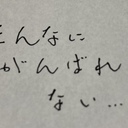 そんなに
がんばれ
ない…